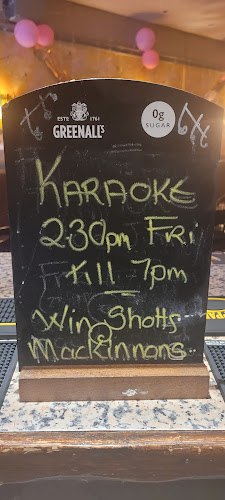 ESTD 1761
GREENALL'S
0g
SUGAR
KARAOKE
230pm Fri
till 7pm
Win Shotts
@
Mackinnons